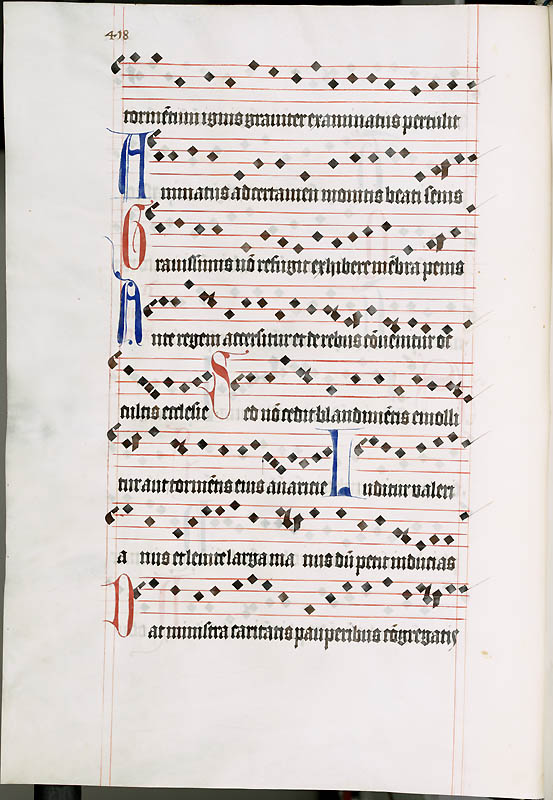 418
tormētum ignis graniter examinatus pertulit
Animatus ad certamen monitis beati senis
Grauissimis nō refugit exhibere mēbra penis
Ante regem accersitur et de rebus cōuenitur oc
cultis ecclesie Sed nō cedit blandimētis emolli
tur aut tormētis eius auaricie Luditur valeri
a nus et leuite larga ma nus dū petit inducias
Dat ministra caritatis pauperibus cōgregatis